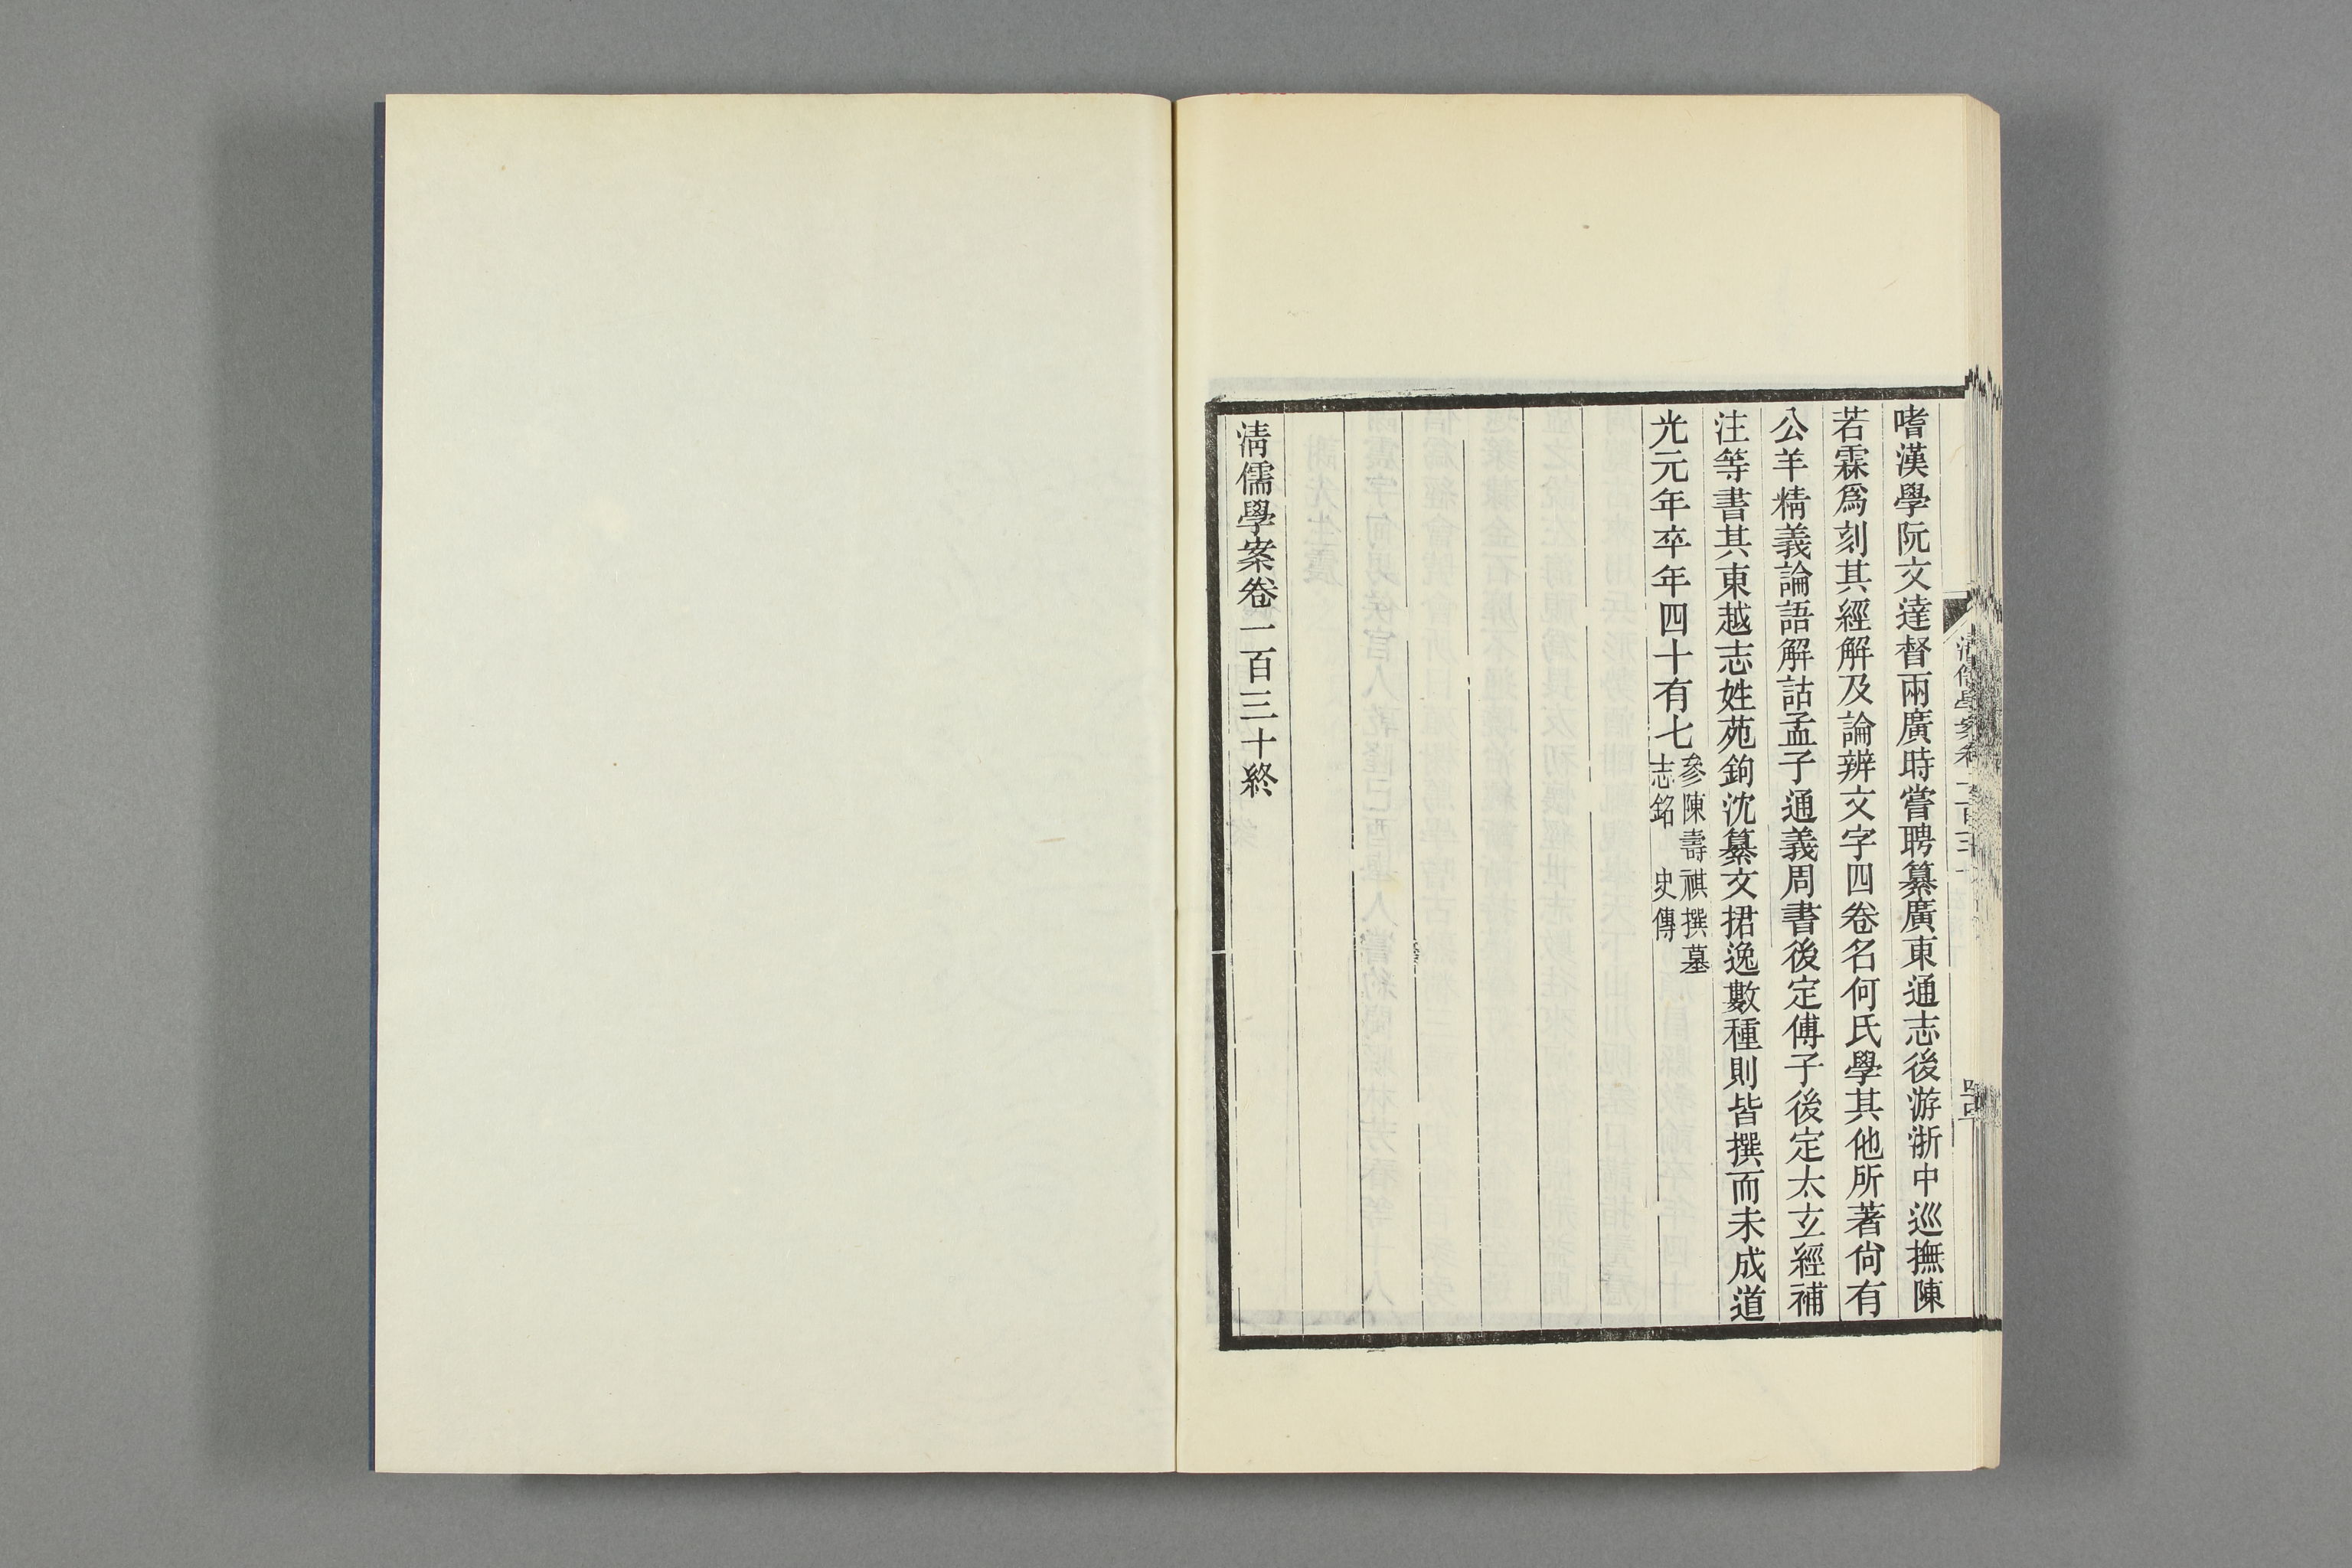 嗜漢學阮文達督兩廣時嘗聘纂廣東通志後游浙中巡撫陳
若霖爲刻其經解及論辨文字四卷名何氏學其他所著尙有
公羊精義論語解詁孟子通義周書後定傅子後定太玄經補
注等書其東越志姓苑鉤沈纂文捃逸數種則皆撰而未成道
光元年卒年四十有七參陳壽祺撰墓
志銘 史傳
清儒學案卷一百三十終
清儒學案卷一百三十